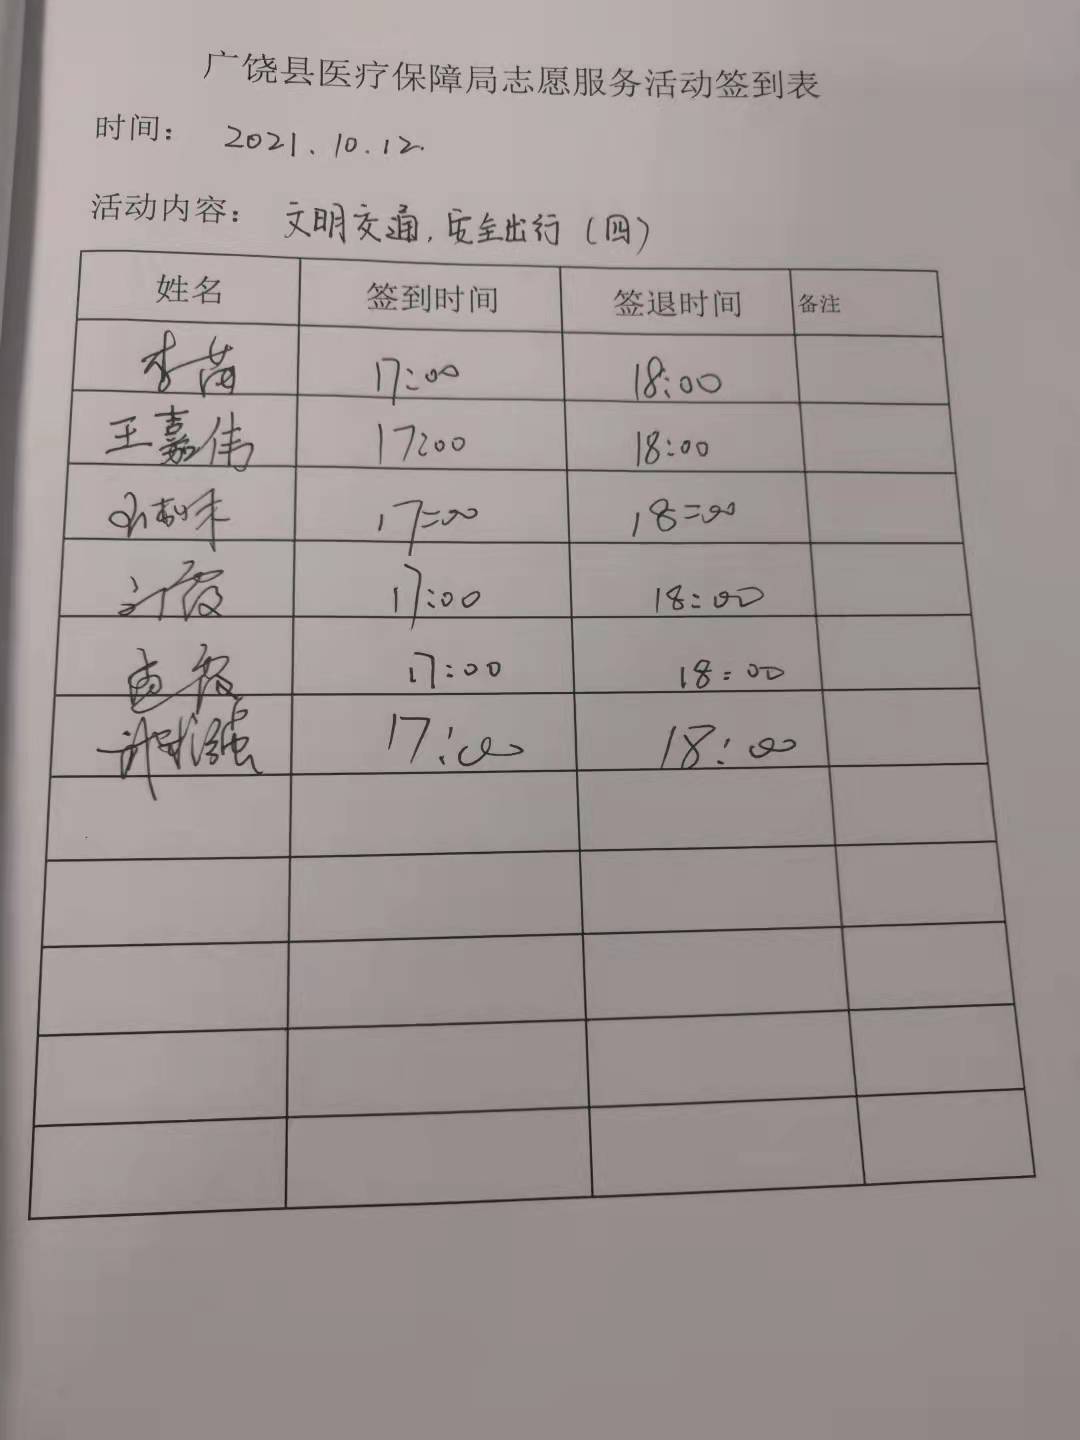 广饶县医疗保障局志愿服务活动签到表
时间: 2021.10.12.
活动内容: 文明交通,安全出行(四)
姓名 签到时间 签退时间 备注
李苗 17:00 18:00
王嘉伟 17:00 18:00
17:00 18:00
刘霞 17:00 18:00
17:00 18:00
17:00 18:00